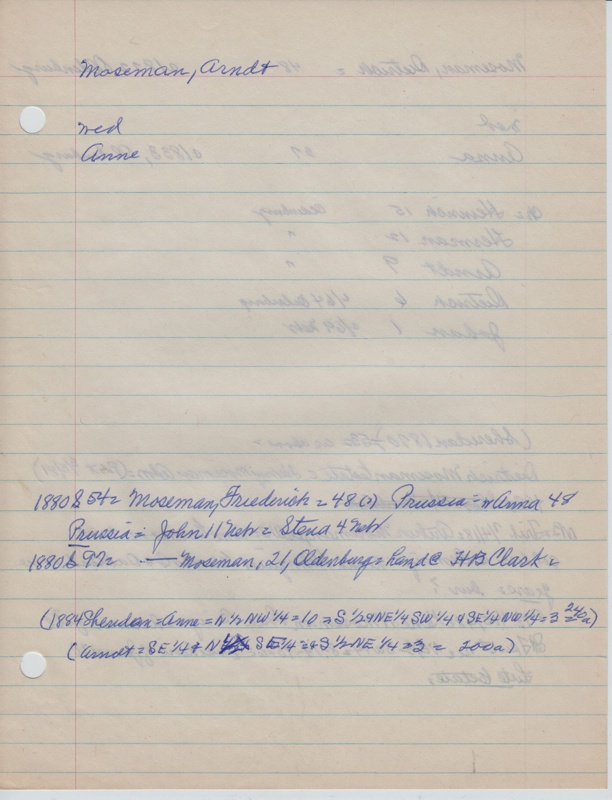 Moseman, Arndt
wed
Anne
1880 S 54= Moseman, Friederich = 48 (?) Prussia = m Anna 48
Prussia = John 11 Nebr = Stena 4 Nebr
1880 S 97= — Moseman, 21, Oldenburg = hand @ H B Clark =
(1884 Sheridan = Anne = N 1/2 NW 1/4 = 10 = S 1/2 & NE 1/4 SW 1/4 & SE 1/4 NW 1/4 = 3 = 240a)
(Arndt = SE 1/4 & N SE 1/4 = & S 1/2 NE 1/4 = 3 = 200a)